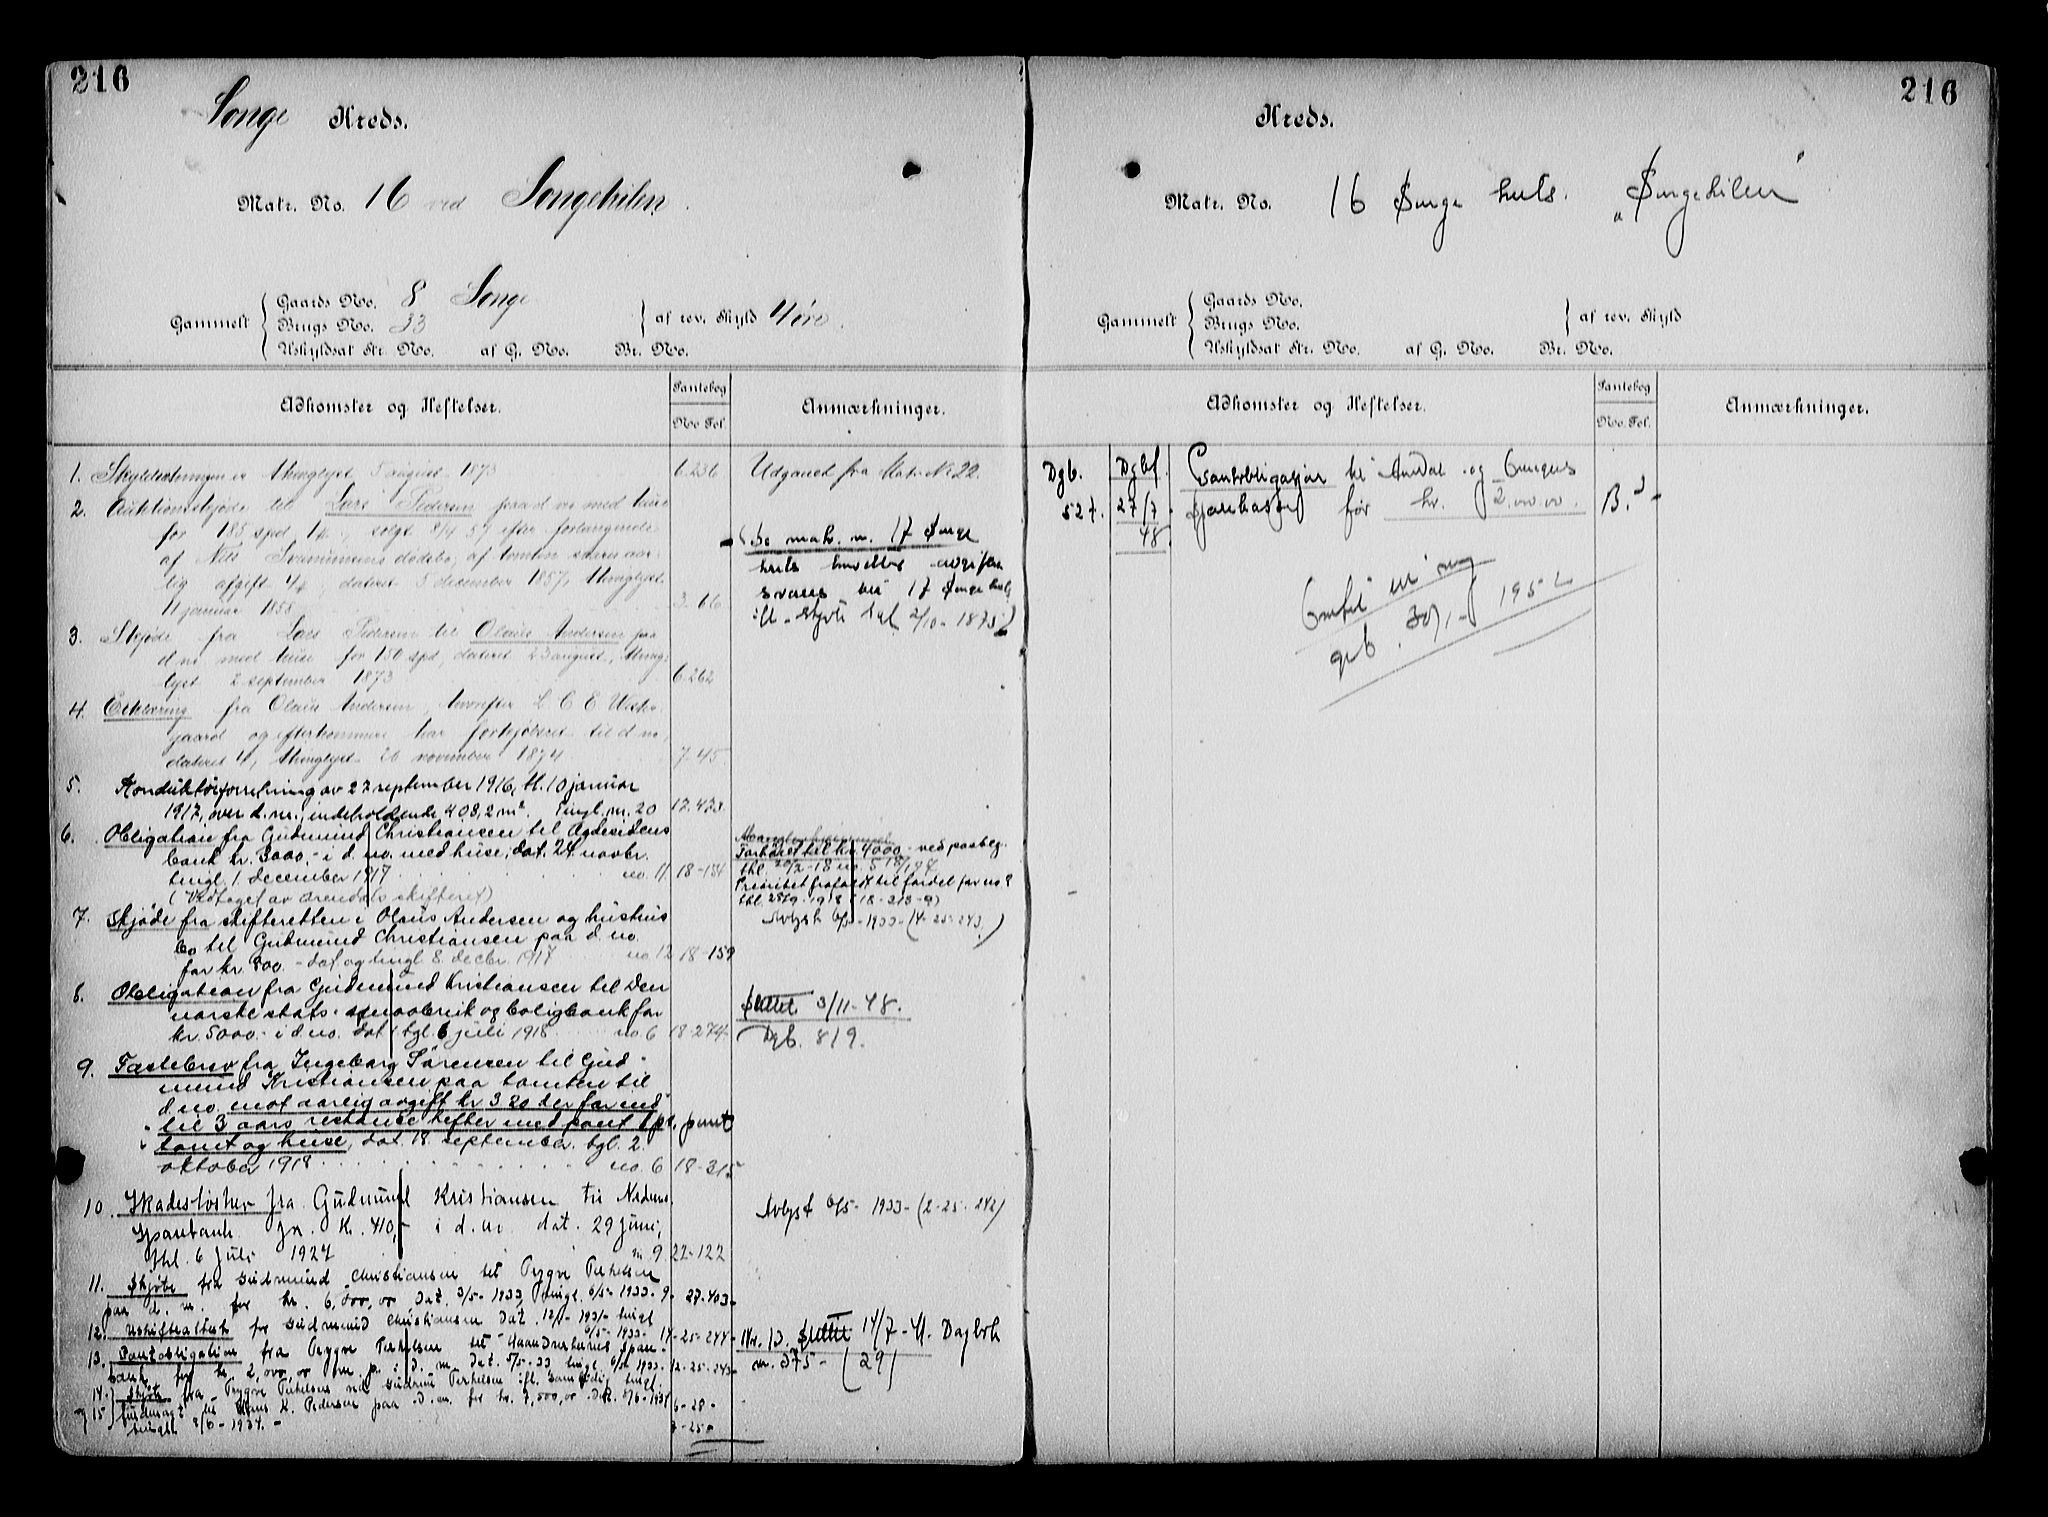 216
Songe Kreds.
Matr. No. 16 ved Songekilen.
Gammelt
Gaards No. 8 Songe
Brugs No. 33
Uskyldsat Str. No. af G. No. Br. No.
af rev. Skyld 4 øre.
Adkomster og Heftelser.
Pantebog
No Fol.
Anmærkninger.
1. Skylddelningen er thinglyst 5 august 1873 6-236
Udgaaet fra Matr. No 22.
2. Auktionsskjøde til Lars Pedersen paa d no med huse
for 185 spd, solgt 8/4 57 efter forlangende
af Nils dødsbo, af tomten svares aar-
lig afgift, dateret 5 december 1857, thinglyst
11 januar 1858 3-66
(Se matr. n. 17 Songe
svares til 17 Songe huls
ifl. skjøte tgl. 2/10-1875)
3. Skjøde fra Lars Pedersen til Olaus Andersen paa
d no med huse for 150 spd, dateret 23 august, thing-
lyst 2 september 1873 6-262
4. Erklæring fra Olaus Andersen, hvorefter L C E Weste-
gaard og efterkommere har forkjøbsret til d no,
dateret 4, thinglyst 26 november 1874 7-45
5. Konduktørforretning av 27 september 1916, tl. 10 januar
1917, over d. no., indeholdende 408,2 m² Tingl. nr. 20 17-473
6. Obligation fra Gudmund Christiansen til Agdesidens
bank kr. 3000.- i d. no. med huse, dat. 24 novbr.
tingl. 1. december 1917 no. 11 18-154
Forhøiet til kr. 4000 - ved paateg.
tbl. 20/2-18 no 5 18/197
Prioritet frafaldt til fordel for no 8
tbl. 28/9-1918 (18-313-9)
Avlyst 6/5-1933-(14-25-243)
(Vedtaget av Arendals skifteret)
7. Skjøde fra skifteretten i Olaus Andersen og hustrus
bo til Gudmund Christiansen paa d. no.
for kr. 800.- dat og tingl 8. decbr. 1917 no 12 18-159
8. Obligation fra Gudmund Kristiansen til Den
norske stats- smaabruk og boligbank for
kr. 5000.- i d no. dat. tgl. 6 juli 1918 no 6 18-274
Slettet 3/11-48.
Dgb. 819.
9. Fæstebrev fra Ingeborg Sørensen til Gud-
mund Kristiansen paa tomten til
d. no. mot aarlig avgift kr 3.20 der for ind-
til 3 aars restanse hefter med pant 1 pr. pant
tomt og huse, dat. 18. september. tgl. 2.
oktober 1918 no. 6 18-315
10. Skadesløsbrev fra Gudmund Kristiansen til Nedenes
Sparebank for Kr. 410,- i d. no. dat. 29 juni,
tbl. 6 juli 1927 n 9. 22-122
Avlyst 6/5-1933-(2-25-242)
11. Skjøte fra Gudmund Christiansen til Trygve Terkelsen
paa d. n. for kr. 6,000,00 Dat. 3/5-1933, tingl. 6/5-1933. 9- 27-403-
12. Uskifteattest for Gudmund Christiansen Dat. 12/1-1931- tingl
6/5-1933- 14-25-244-
13. Pantobligation fra Trygve Terkelsen til Haandverkernes Spare-
bank for kr. 2,000,00 1. pr. i d. n. Dat. 5/5-33 tingl. 6/5 1933. 12-25-243-
Nr. 13. Slettet 14/7-41. Dagbok
nr. 375- (29)
14. Skjøte fra Trygve Terkelsen ved Gudrun Terkelsen ifl.
15 til Hans K. Pedersen paa d. n. for kr. 7,500,00 Dat. 8/6-1934 6-28-
tinglst 8/6-1934.- 7-25-
216
Kreds.
Matr. No. 16 Songe huls. "Songekilen"
Gammelt
Gaards No.
Brugs No.
Uskyldsat Str. No. af G. No. Br. No.
af rev. Skyld
Adkomster og Heftelser.
Pantebog
No. Fol.
Anmærkninger.
Dgb. Dgbf. Pantobligasjon til Arendal og Omegns
527. 27/7-48. Sparekasse for kr. 2.000.00. B.
1952